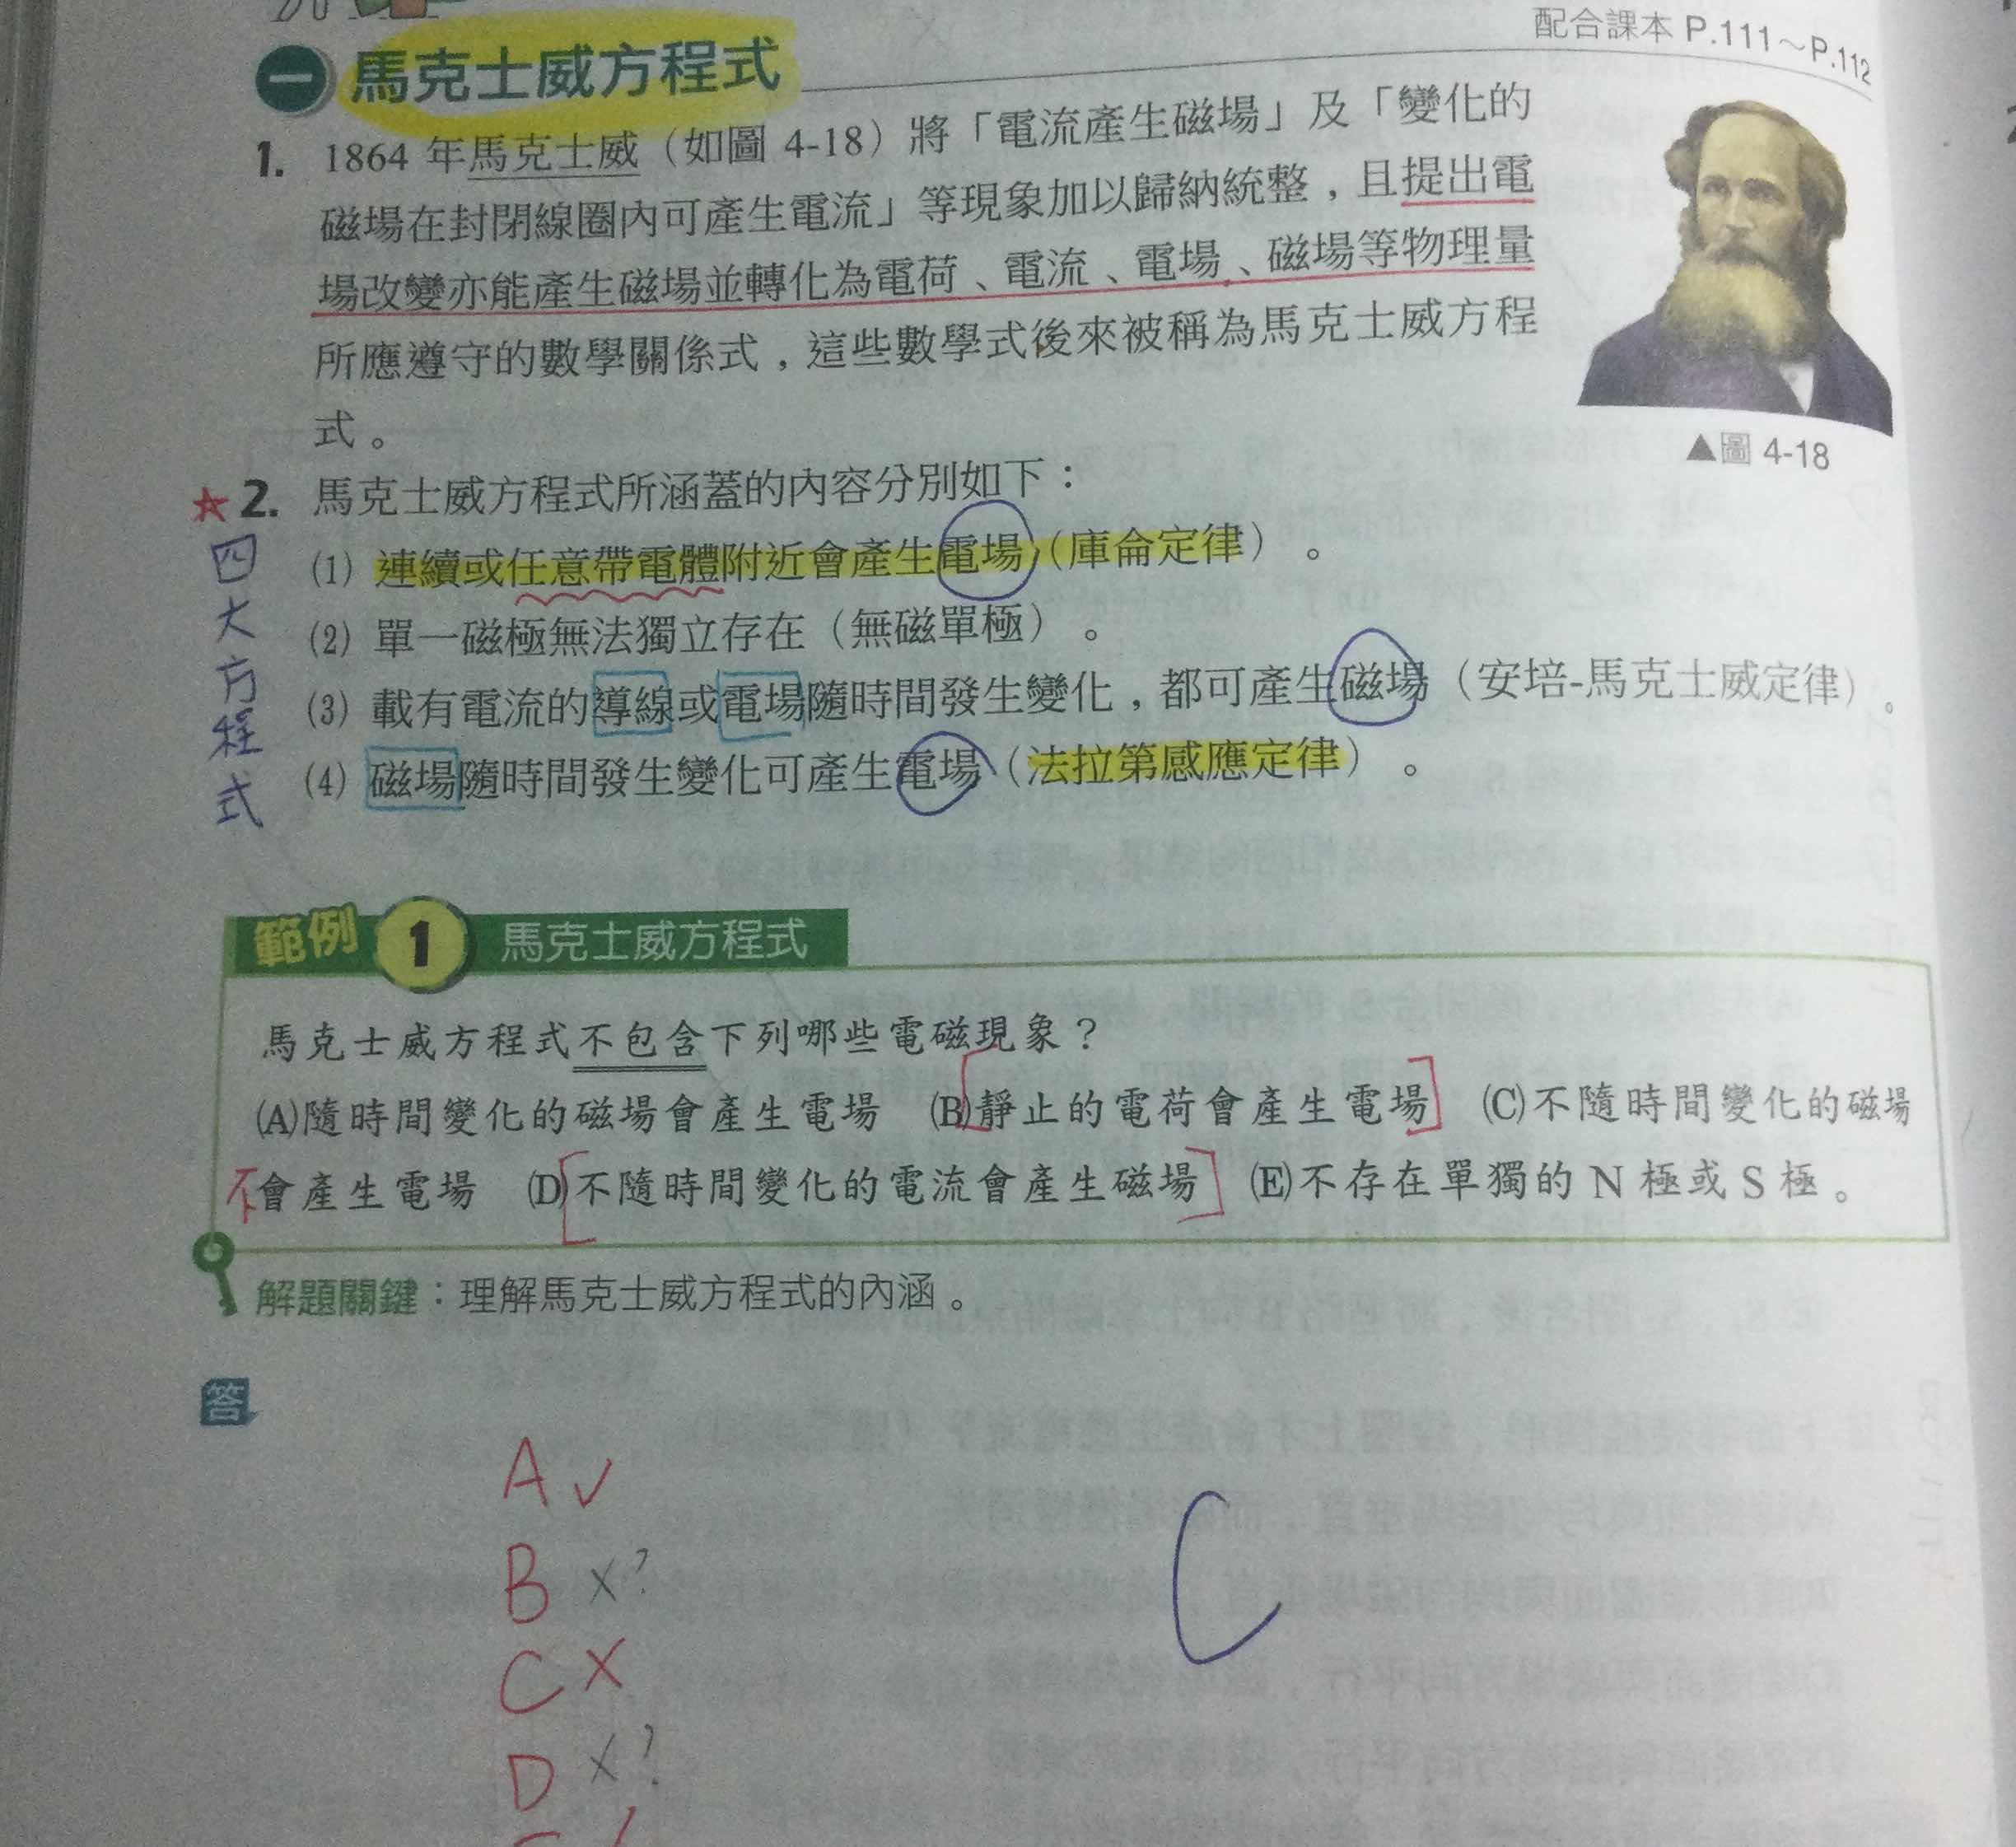 配合課本 P.111～P.112
一 馬克士威方程式
1. 1864 年馬克士威（如圖 4-18）將「電流產生磁場」及「變化的
磁場在封閉線圈內可產生電流」等現象加以歸納統整，且提出電
場改變亦能產生磁場並轉化為電荷、電流、電場、磁場等物理量
所應遵守的數學關係式，這些數學式後來被稱為馬克士威方程
式。
▲圖 4-18
★2. 馬克士威方程式所涵蓋的內容分別如下：
四大方程式
(1) 連續或任意帶電體附近會產生電場（庫侖定律）。
(2) 單一磁極無法獨立存在（無磁單極）。
(3) 載有電流的導線或電場隨時間發生變化，都可產生磁場（安培-馬克士威定律）。
(4) 磁場隨時間發生變化可產生電場（法拉第感應定律）。
範例 1 馬克士威方程式
馬克士威方程式不包含下列哪些電磁現象？
(A)隨時間變化的磁場會產生電場 (B)靜止的電荷會產生電場 (C)不隨時間變化的磁場
不會產生電場 (D)不隨時間變化的電流會產生磁場 (E)不存在單獨的 N 極或 S 極。
解題關鍵：理解馬克士威方程式的內涵。
答
A ✓
B ×?
C ×
D ×?
C